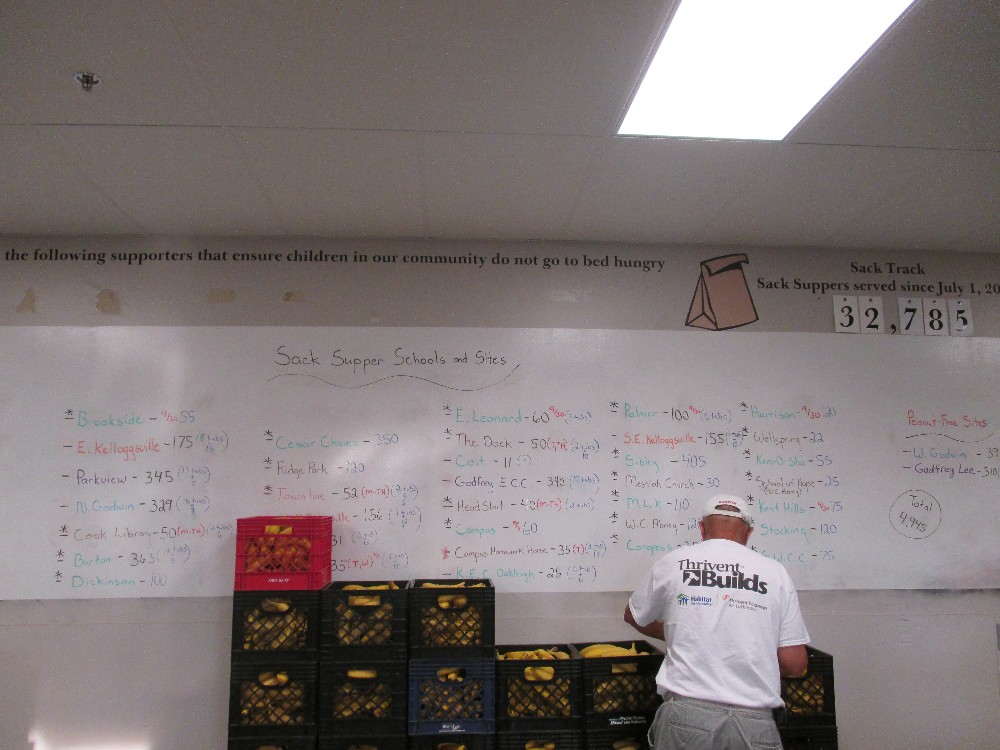 the following supporters that ensure children in our community do not go to bed hungry
Sack Track
Sack Suppers served since July 1, 20
32,785
Sack Supper Schools and Sites
* Brookside - 9/30 55
- E. Kelloggsville - 175
- Parkview - 345
- N. Godwin - 329
* Cook Library - 50 (M-TH)
* Burton - 363
* Dickinson - 100
* Cesar Chavez - 350
* Ridge Park - 120
* Townline - 52 (M-TH)
ille - 156
31
35 (T,W)
* E. Leonard - 60 9/30
* The Dock - 50 (T,TH)
- Coit - 11
- Godfrey E.C.C. - 343
* Head Start
* Campus - 60
* Campus Homework House - 35 (T)
- K.E.C. Oakleigh - 26
* Palmer - 100
- S.E. Kelloggsville - 155
* Sibley - 405
* Messiah Church - 30
* M.L.K. - 110
* W.C. Money
* Congress
* Harrison - 9/30 20
* Wellspring - 22
* Ken-O-Sha - 55
* School in House - 25
* Kent Hills - 75
* Stocking - 120
C.W.C.C. - 75
Peanut-Free Sites
- W. Godwin - 39
- Godfrey Lee - 310
Total
4,945
Thrivent
Builds
Habitat
Thrivent Financial
for Lutherans